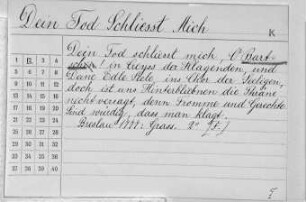 Dein Tod Schliesst Mich
K
Dein Tod schliest mich, O
in Creyss der Klagenden, und
Edle Sele, ins Chor der Seeligen,
doch ist uns Hinterbliebnen die Thräne
nicht versagt, denn Fromme und Gerechte
sind würdig, dass man klagt.
Breslau 1777: Grass. 2°
1 11 21 31
2 12 22 32
3 13 23 33
4 14 24 34
5 15 25 35
6 16 26 36
7 17 27 37
8 18 28 38
9 19 29 39
10 20 30 40